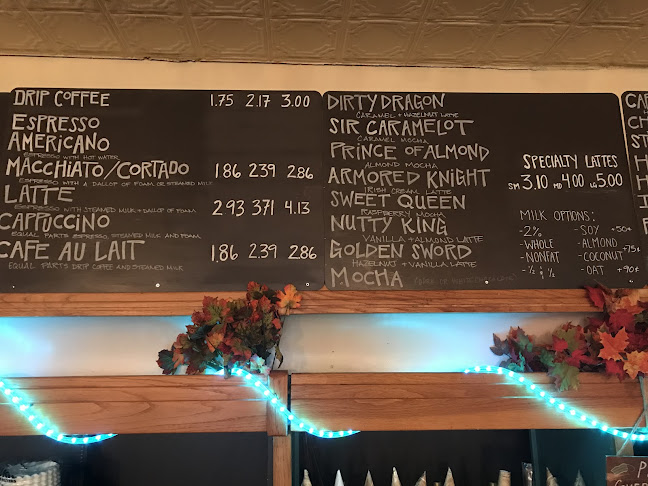 DRIP COFFEE 1.75 2.17 3.00
ESPRESSO
AMERICANO
ESPRESSO WITH HOT WATER
MACCHIATO/CORTADO 1.86 2.39 2.86
ESPRESSO WITH A DALLOP OF FOAM OR STEAMED MILK
LATTE 2.93 3.71 4.13
ESPRESSO WITH STEAMED MILK + DALLOP OF FOAM
CAPPUCCINO
EQUAL PARTS ESPRESSO, STEAMED MILK AND FOAM
CAFE AU LAIT 1.86 2.39 2.86
EQUAL PARTS DRIP COFFEE AND STEAMED MILK
DIRTY DRAGON
CARAMEL + HAZELNUT LATTE
SIR CARAMELOT
CARAMEL MOCHA
PRINCE OF ALMOND
ALMOND MOCHA
ARMORED KNIGHT
IRISH CREAM LATTE
SWEET QUEEN
RASPBERRY MOCHA
NUTTY KING
VANILLA + ALMOND LATTE
GOLDEN SWORD
HAZELNUT + VANILLA LATTE
MOCHA
SPECIALTY LATTES
SM 3.10 MD 4.00 LG 5.00
MILK OPTIONS:
-2% -SOY +50¢
-WHOLE -ALMOND
-NONFAT -COCONUT +75¢
-½ & ½ -OAT +90¢
CA
CH
ST
H
H